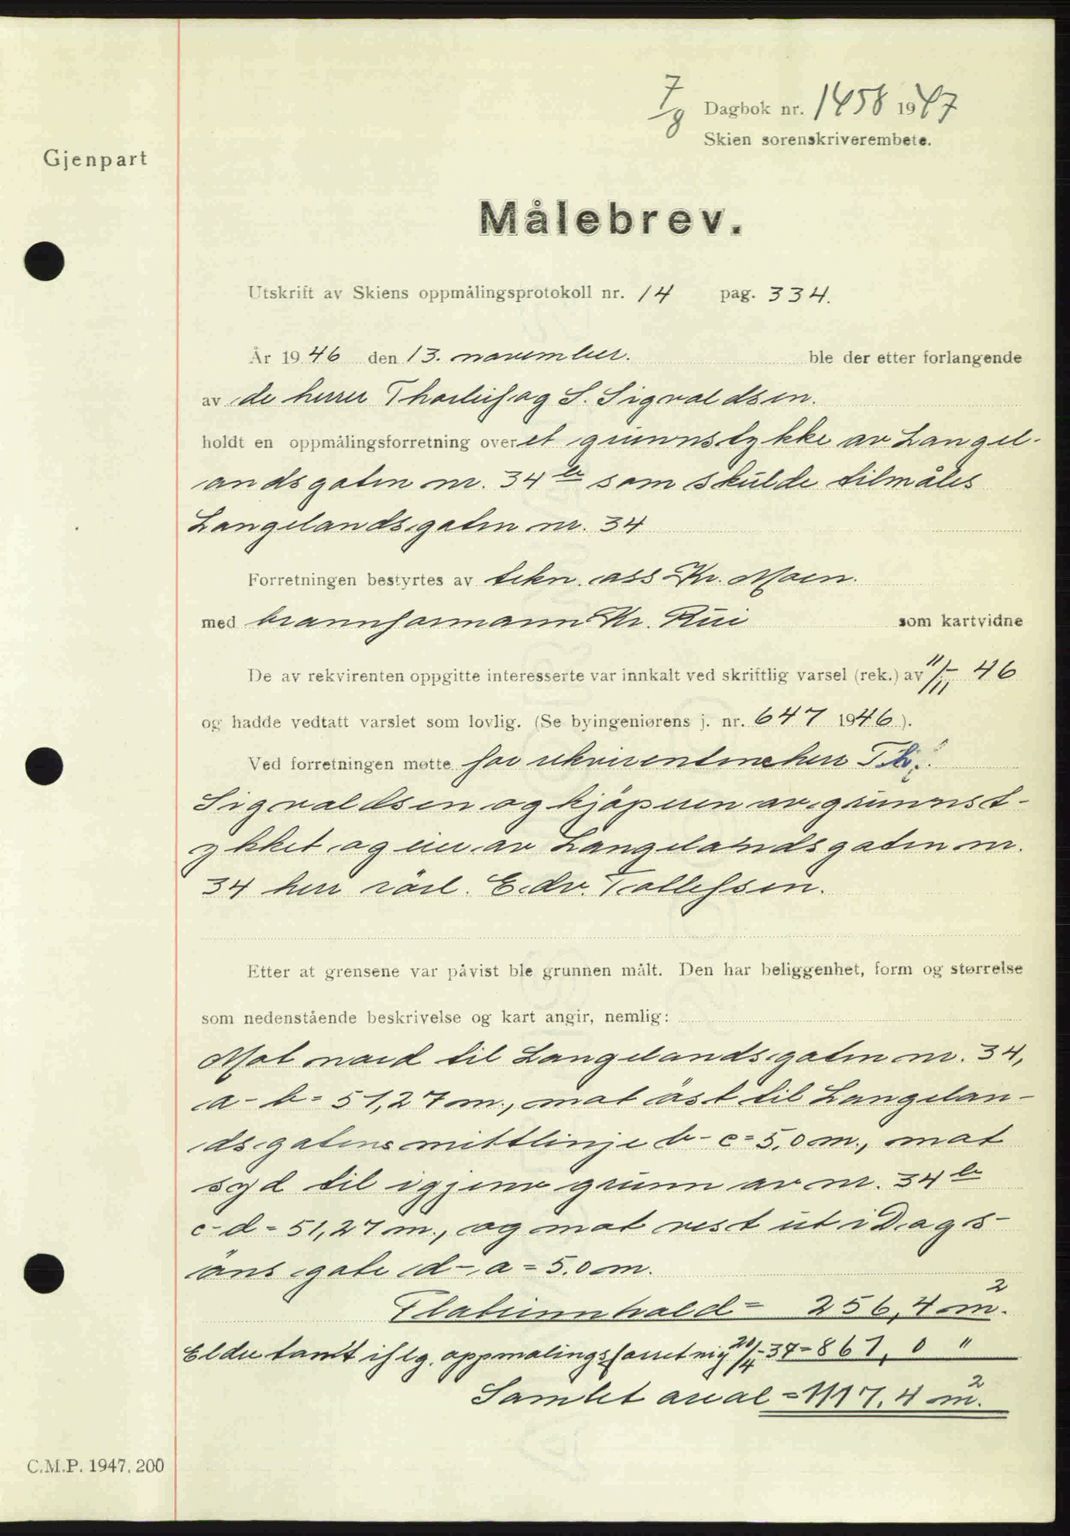 7/8 Dagbok nr. 1458 1947
Skien sorenskriverembete.
Gjenpart
Målebrev.
Utskrift av Skiens oppmålingsprotokoll nr. 14 pag. 334.
År 1946 den 13. november. ble der etter forlangende
av de herrer Thorleif og S. Sigvaldsen.
holdt en oppmålingsforretning over et grunnstykke av Langel-
andsgaten nr. 34 b som skulde tilmåles
Langelandsgaten nr. 34
Forretningen bestyrtes av tekn. ass Kr. Moen.
med brannformann Kr. Rui som kartvidne
De av rekvirenten oppgitte interesserte var innkalt ved skriftlig varsel (rek.) av 11/11 46
og hadde vedtatt varslet som lovlig. (Se byingeniørens j. nr. 647 1946).
Ved forretningen møtte for rekvirentene herr Th.
Sigvaldsen og kjöperen av grunnst-
ykket og eier av Langelandsgaten nr.
34 herr rörl. Edv. Tollefsen.
Etter at grensene var påvist ble grunnen målt. Den har beliggenhet, form og størrelse
som nedenstående beskrivelse og kart angir, nemlig:
Mot nord til Langelandsgaten nr. 34,
a-b = 51,27 m., mot öst til Langelan-
dsgatens mittlinje b-c = 5,0 m., mot
syd til igjenv grunn av nr. 34 b
c-d = 51,27 m., og mot vest ut i Dags-
öns gate d-a = 5.0 m.
Flateinnhold = 256,4 m².
Eldre tomt iflg. oppmålingsforretnig 20/4-37 = 861,0 "
Samlet areal = 1117,4 m².
C.M.P. 1947. 200